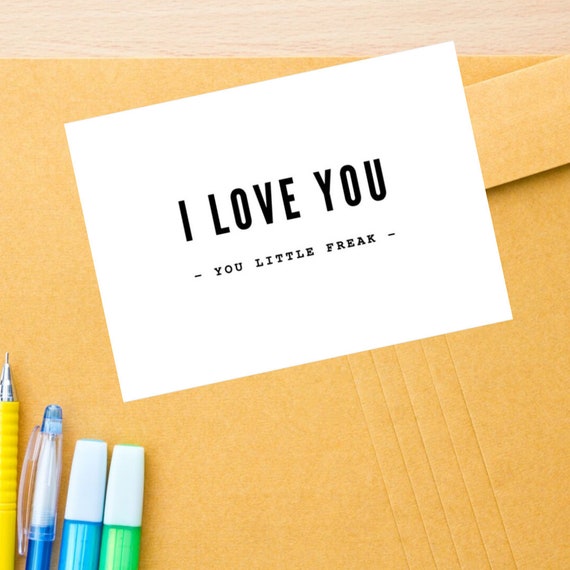 I LOVE YOU
- YOU LITTLE FREAK -